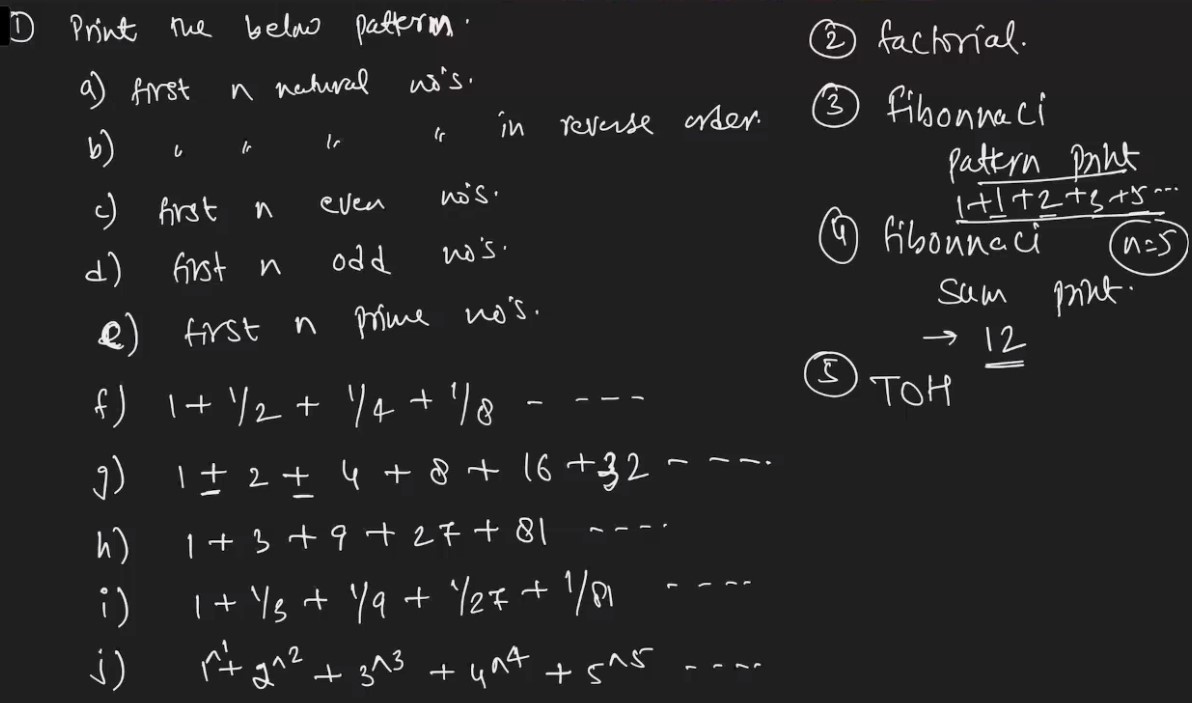 ① Print the below pattern.
a) first n natural no's.
b) " " " " in reverse order.
c) first n even no's.
d) first n odd no's.
e) first n prime no's.
f) 1 + 1/2 + 1/4 + 1/8 - ----
g) 1 + 2 + 4 + 8 + 16 + 32 - ---.
h) 1 + 3 + 9 + 27 + 81 ----.
i) 1 + 1/3 + 1/9 + 1/27 + 1/81 ----
j) 1^1 + 2^2 + 3^3 + 4^4 + 5^5 ----
② factorial.
③ fibonnaci
pattern print
1+1+2+3+5...
④ fibonnaci n=5
sum print.
→ 12
⑤ TOH